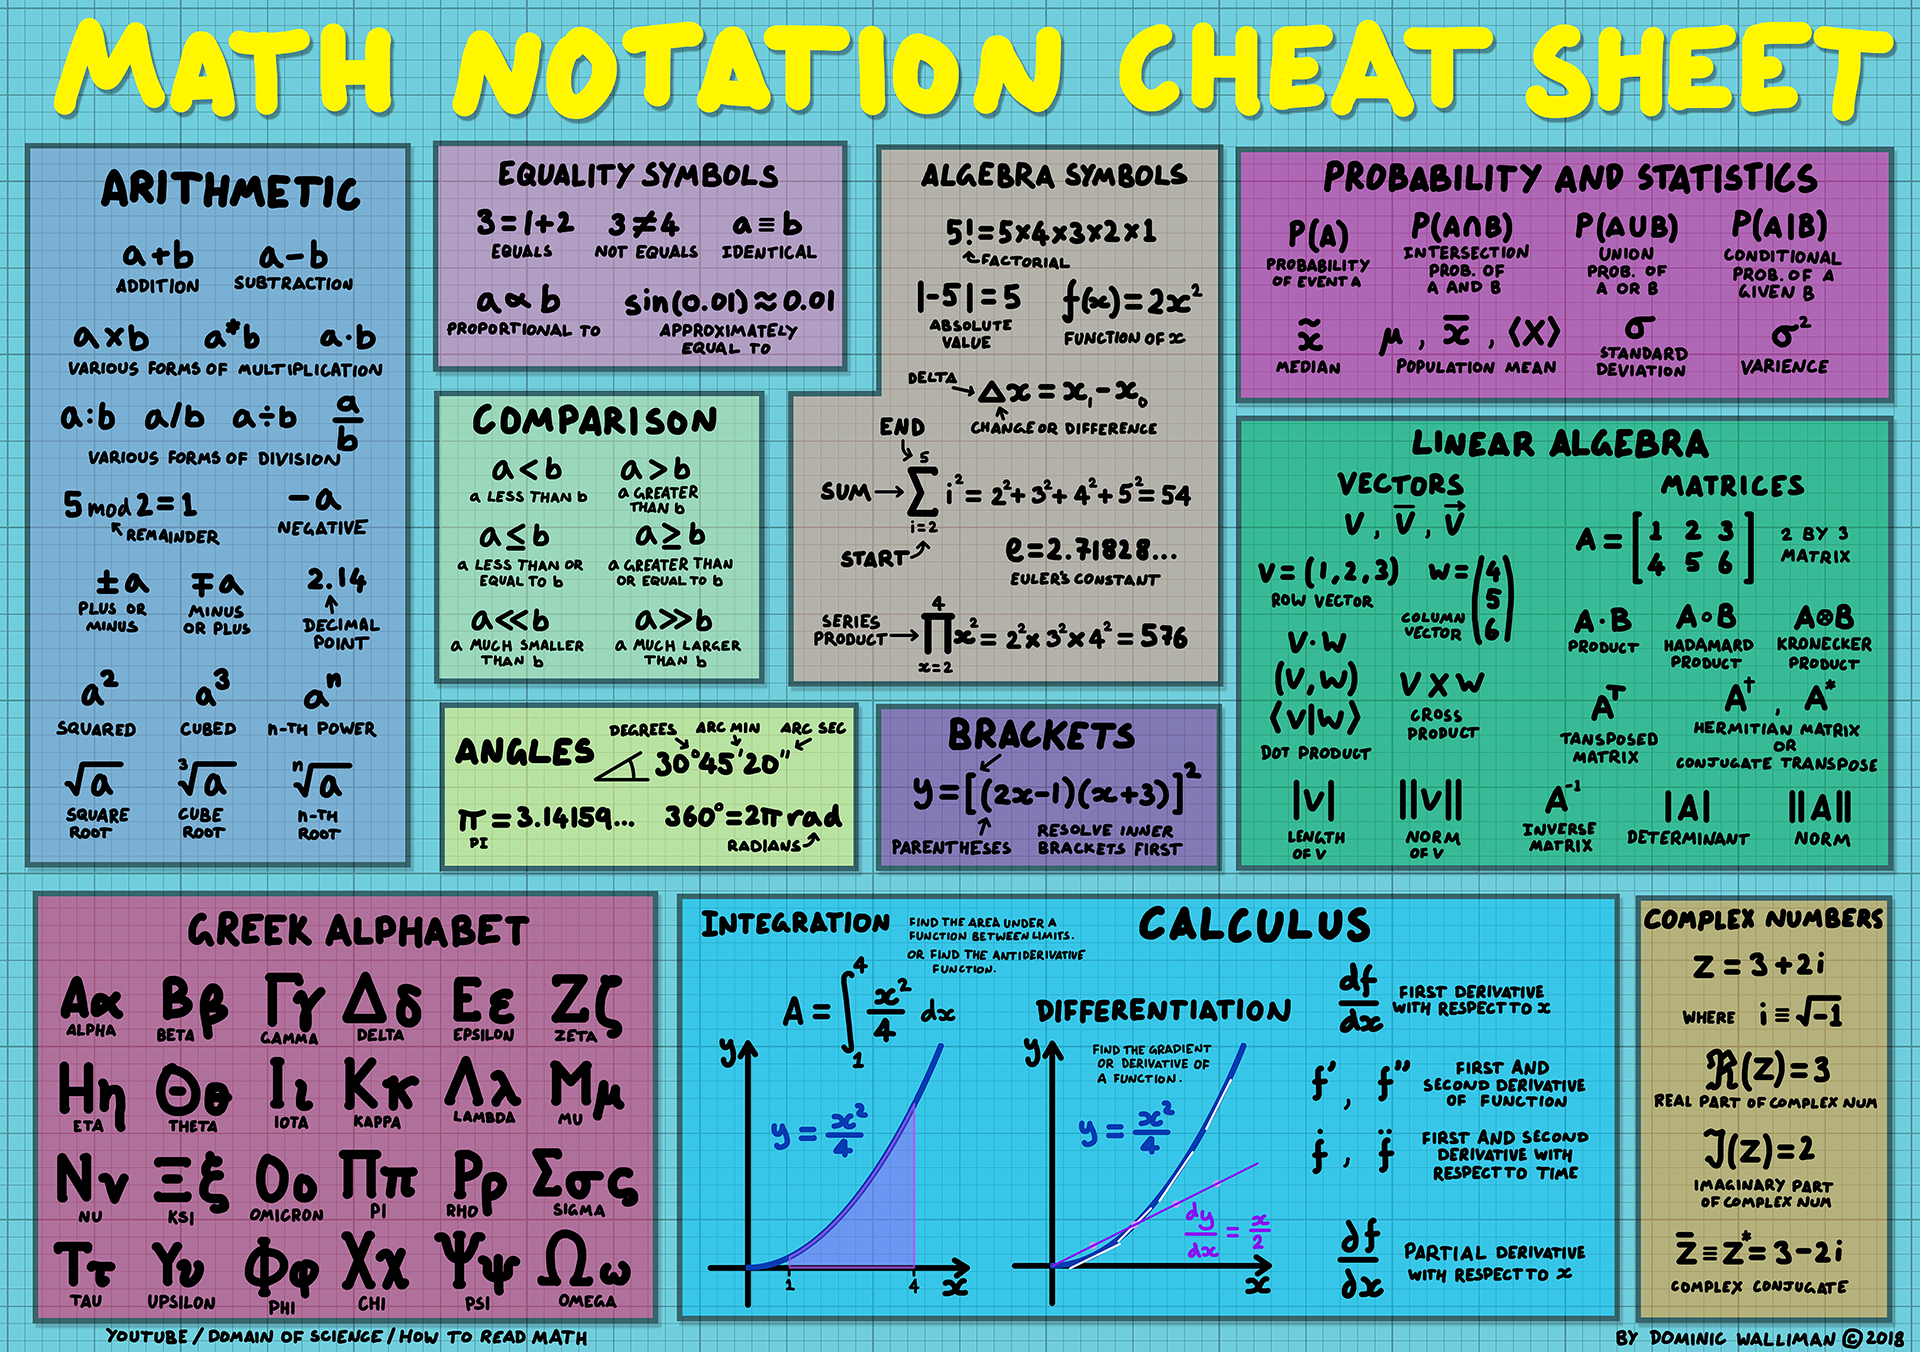 MATH NOTATION CHEAT SHEET
ARITHMETIC
a+b a-b
ADDITION SUBTRACTION
a×b a*b a·b
VARIOUS FORMS OF MULTIPLICATION
a:b a/b a÷b a/b
VARIOUS FORMS OF DIVISION
5 mod 2 = 1 -a
REMAINDER NEGATIVE
±a ∓a 2.14
PLUS OR MINUS
MINUS OR PLUS
DECIMAL POINT
a² a³ aⁿ
SQUARED CUBED n-TH POWER
√a ³√a ⁿ√a
SQUARE ROOT
CUBE ROOT
n-TH ROOT
EQUALITY SYMBOLS
3=1+2 3≠4 a≡b
EQUALS NOT EQUALS IDENTICAL
a∝b sin(0.01)≈0.01
PROPORTIONAL TO
APPROXIMATELY
EQUAL TO
COMPARISON
a<b a>b
a LESS THAN b
a GREATER
THAN b
a≤b a≥b
a LESS THAN OR
EQUAL TO b
a GREATER THAN
OR EQUAL TO b
a<<b a>>b
a MUCH SMALLER
THAN b
a MUCH LARGER
THAN b
ALGEBRA SYMBOLS
5!=5×4×3×2×1
FACTORIAL
|-5|=5 f(x)=2x²
ABSOLUTE
VALUE
FUNCTION OF x
DELTA Δx = x₁-x₀
CHANGE OR DIFFERENCE
END
5
SUM Σ i² = 2²+3²+4²+5²=54
i=2
START
e=2.71828...
EULER'S CONSTANT
4
SERIES
PRODUCT ∏x² = 2²×3²×4² = 576
x=2
PROBABILITY AND STATISTICS
P(A) P(A∩B) P(A∪B) P(A|B)
PROBABILITY
OF EVENT A
INTERSECTION
PROB. OF
A AND B
UNION
PROB. OF
A OR B
CONDITIONAL
PROB. OF A
GIVEN B
x̃ μ, x̄, ⟨X⟩ σ σ²
MEDIAN POPULATION MEAN
STANDARD
DEVIATION
VARIENCE
LINEAR ALGEBRA
VECTORS
v, v̄, v⃗
v=(1,2,3)
ROW VECTOR
w=(4
5
6)
COLUMN
VECTOR
v·w
(v,w)
⟨v|w⟩
DOT PRODUCT
v×w
CROSS
PRODUCT
|v| ||v||
LENGTH
OF V
NORM
OF V
MATRICES
A=[1 2 3
4 5 6]
2 BY 3
MATRIX
A·B A∘B A⊗B
PRODUCT
HADAMARD
PRODUCT
KRONECKER
PRODUCT
Aᵀ A†, A*
TANSPOSED
MATRIX
HERMITIAN MATRIX
OR
CONJUGATE TRANSPOSE
A⁻¹ |A| ||A||
INVERSE
MATRIX
DETERMINANT NORM
ANGLES
DEGREES ARC MIN ARC SEC
30°45'20"
π=3.14159... 360°=2π rad
PI RADIANS
BRACKETS
y=[(2x-1)(x+3)]²
PARENTHESES
RESOLVE INNER
BRACKETS FIRST
GREEK ALPHABET
Αα Ββ Γγ Δδ Εε Ζζ
ALPHA BETA GAMMA DELTA EPSILON ZETA
Ηη Θθ Ιι Κκ Λλ Μμ
ETA THETA IOTA KAPPA LAMBDA MU
Νν Ξξ Οο Ππ Ρρ Σσς
NU KSI OMICRON PI RHO SIGMA
Ττ Υυ Φφ Χχ Ψψ Ωω
TAU UPSILON PHI CHI PSI OMEGA
CALCULUS
INTEGRATION
FIND THE AREA UNDER A
FUNCTION BETWEEN LIMITS.
OR FIND THE ANTIDERIVATIVE
FUNCTION.
4
A = ∫ x²/4 dx
1
y
y = x²/4
1 4 x
DIFFERENTIATION
FIND THE GRADIENT
OR DERIVATIVE OF
A FUNCTION.
y
y = x²/4
dy/dx = x/2
x
df/dx
FIRST DERIVATIVE
WITH RESPECT TO x
f', f''
FIRST AND
SECOND DERIVATIVE
OF FUNCTION
ḟ, f̈
FIRST AND SECOND
DERIVATIVE WITH
RESPECT TO TIME
∂f/∂x
PARTIAL DERIVATIVE
WITH RESPECT TO x
COMPLEX NUMBERS
z=3+2i
WHERE i≡√-1
ℜ(z)=3
REAL PART OF COMPLEX NUM
ℑ(z)=2
IMAGINARY PART
OF COMPLEX NUM
z̄≡z*=3-2i
COMPLEX CONJUGATE
YOUTUBE/DOMAIN OF SCIENCE/HOW TO READ MATH
BY DOMINIC WALLIMAN ©2018